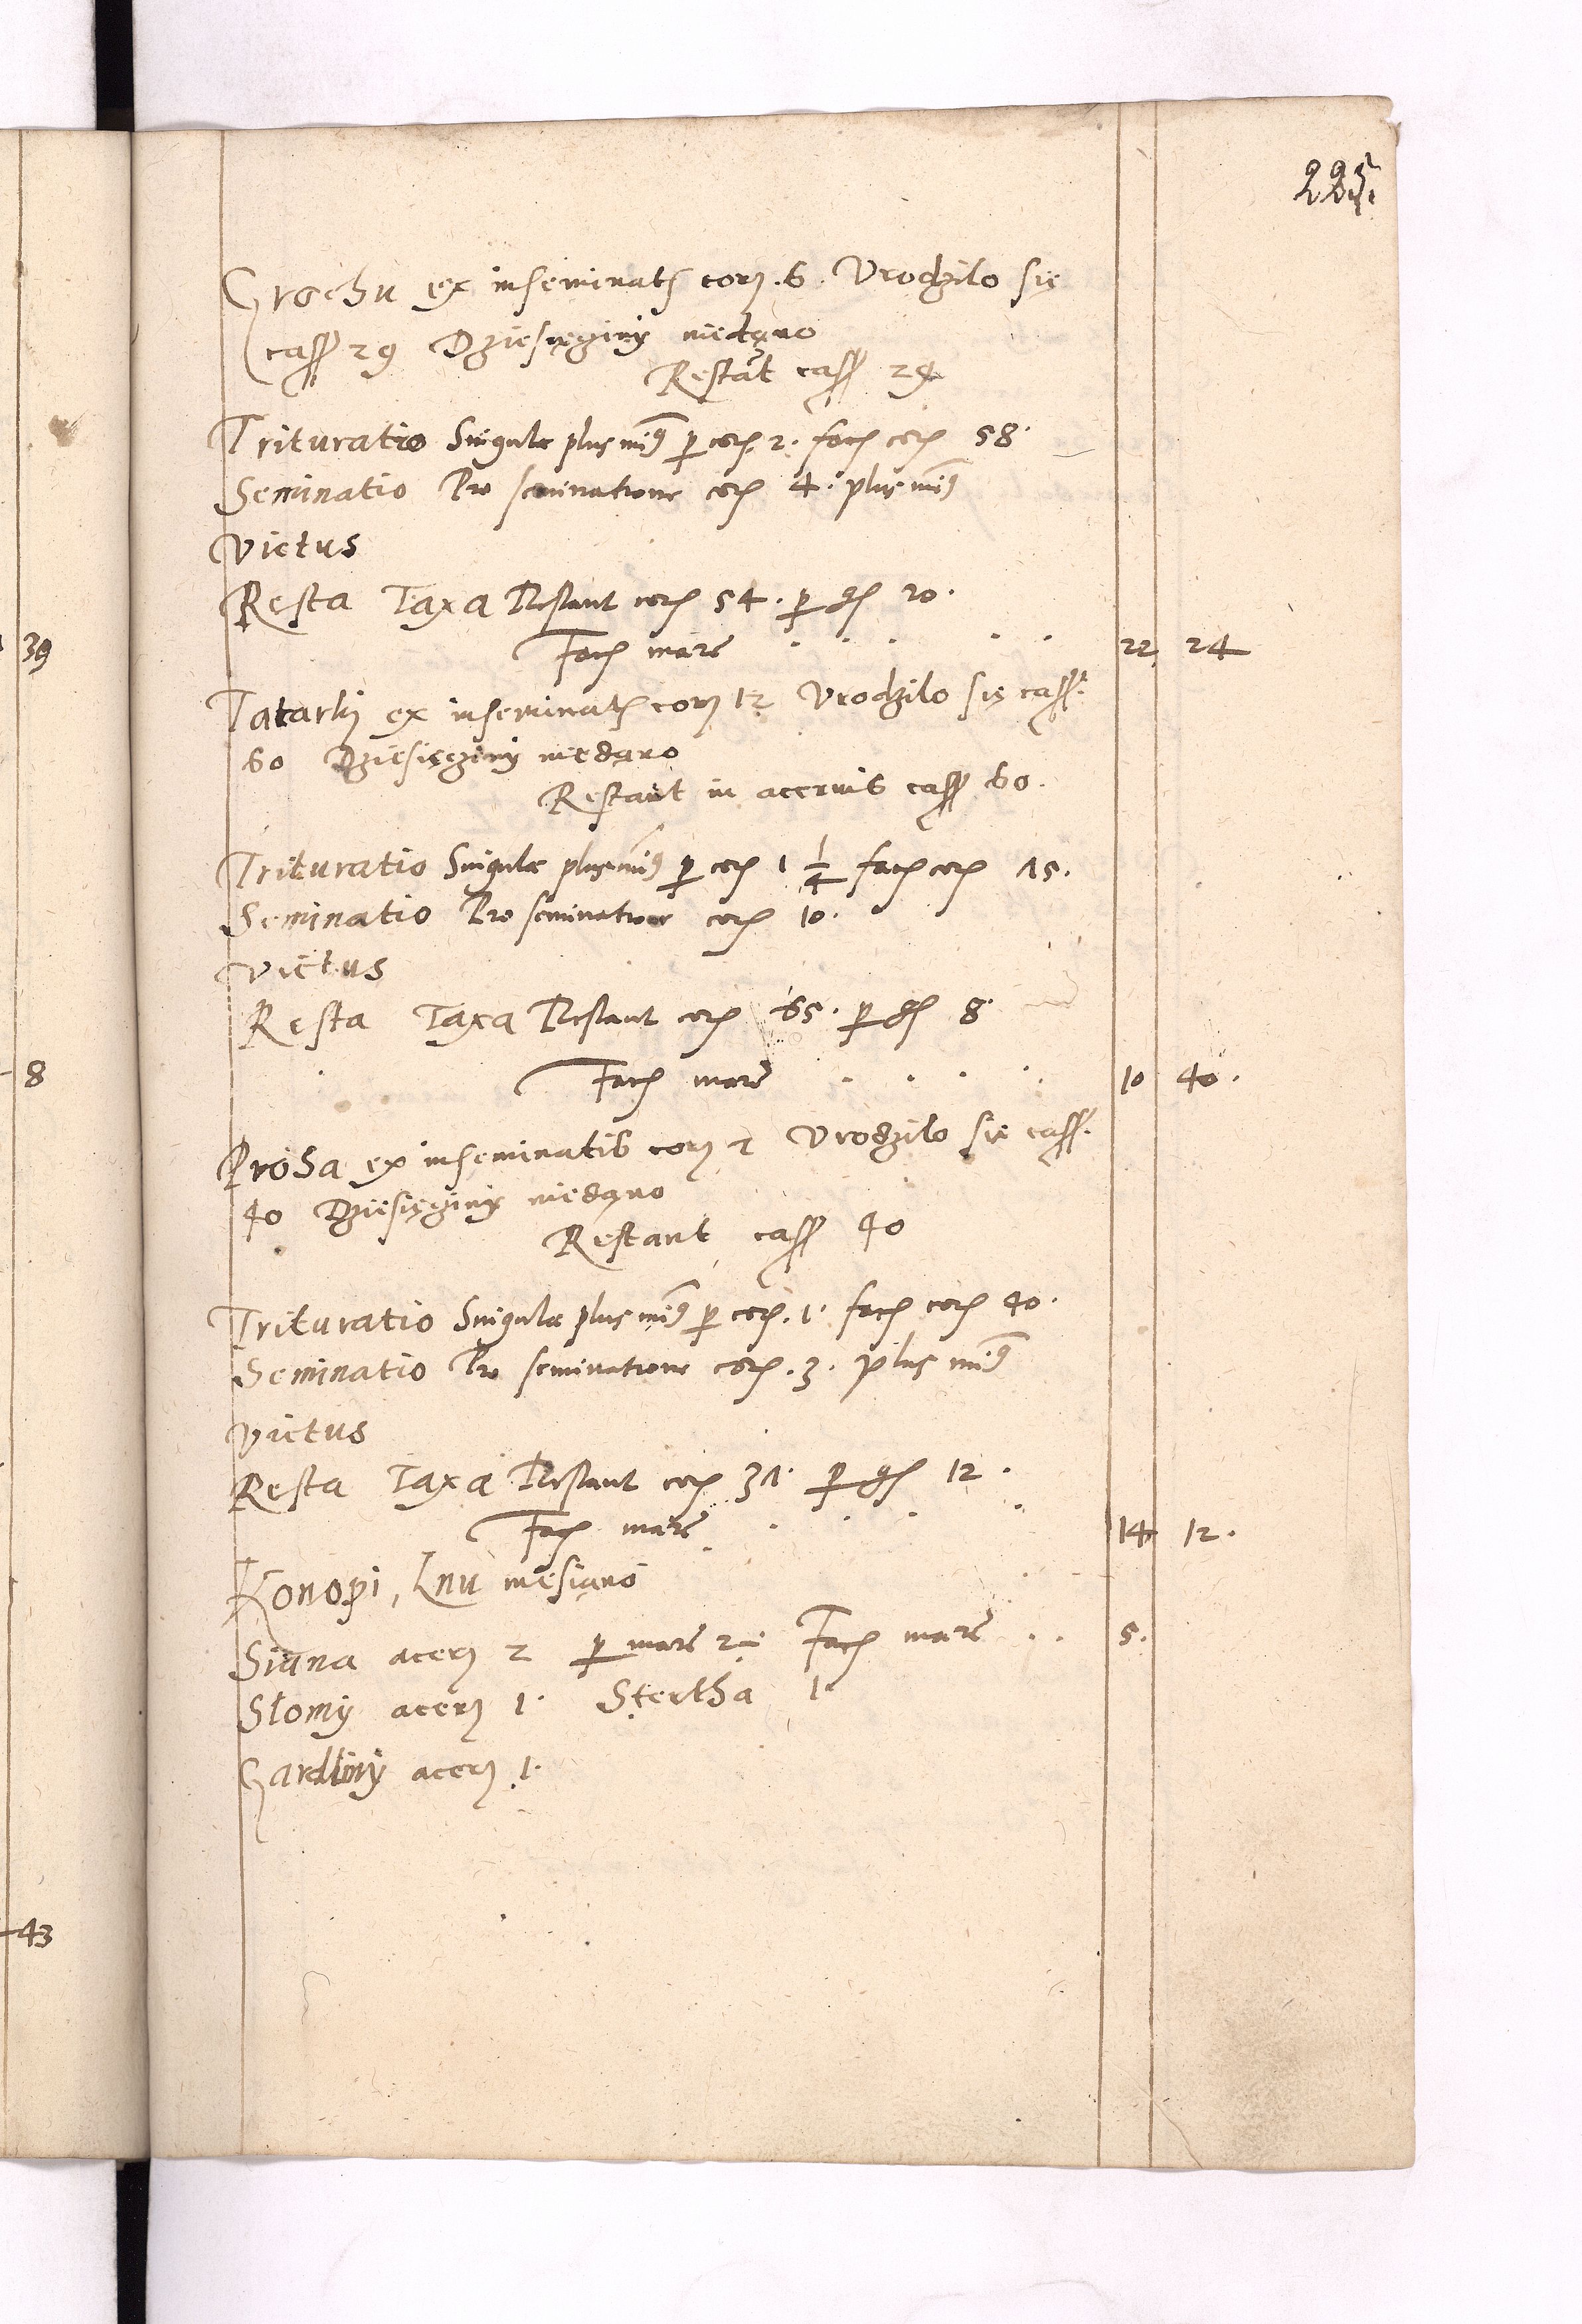 225
Grochu ex inseminatis corz. 6. Vrodzilo się
cass 29 Dziesięginy niedano
Restat cass 29
Trituratio Singula plus min9 p corz. 2. facz corz 58.
Seminatio Pro seminatione corz 4. plus min9
Victus
Resta Taxa Restant corz 54. p gs 20.
Facz mare . . . . . 22 24
Tatarki ex inseminatis corz 12 Vrodzilo się cass.
60 Dziesięginy niedano
Restant in acervis cass 60.
Trituratio Singula plus min9 p corz 1 1/4 facz corz 75.
Seminatio Pro seminatione corz 10.
Victus
Resta Taxa Restant corz 65. p gs 8.
Facz mare . . . . 10 40.
Prosa ex inseminatis corz 2 Vrodzilo się cass.
40 Dziesięginy niedano
Restant cass 40
Trituratio Singula plus min9 p corz. 1. facz corz 40.
Seminatio Pro seminatione corz. 3. plus min9
Victus
Resta Taxa Restant corz 37. p gs 12.
Facz mare . . . . 14 12.
Konopi, Lnu niesiano
Siana acerz 2 p mare 2 Facz mare . . 5.
Slomy acerz 1. Stertha 1.
Gardliny acerz 1.
39
8
43